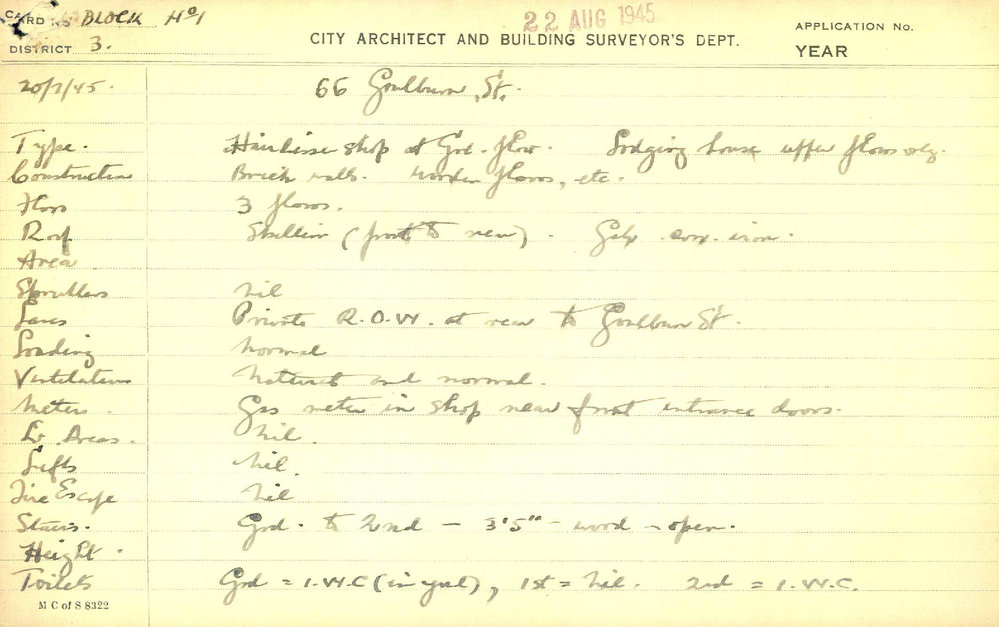 CARD No BLOCK No1 22 AUG 1945 APPLICATION No.
DISTRICT 3. CITY ARCHITECT AND BUILDING SURVEYOR'S DEPT. YEAR
20/7/45. 66 Goulburn St.
Type. Hairdresser shop at Grd. floor. Lodging house upper floors only.
Construction Brick walls. wooden floors, etc.
Floors 3 floors.
Roof Skillion (front to rear). Galv. corr. iron.
Area
Sprinklers nil
Lanes Private R.O.W. at rear to Goulburn St.
Loading normal
Ventilation Natural and normal.
Meters. Gas meter in shop near front entrance doors.
Lt. Areas. nil.
Lifts nil.
Fire Escape nil
Stairs. Grd. to 2nd - 3'5" - wood - open.
Height.
Toilets Grd = 1. W.C (in yard), 1st = nil. 2nd = 1. W.C.
M C of S 8322